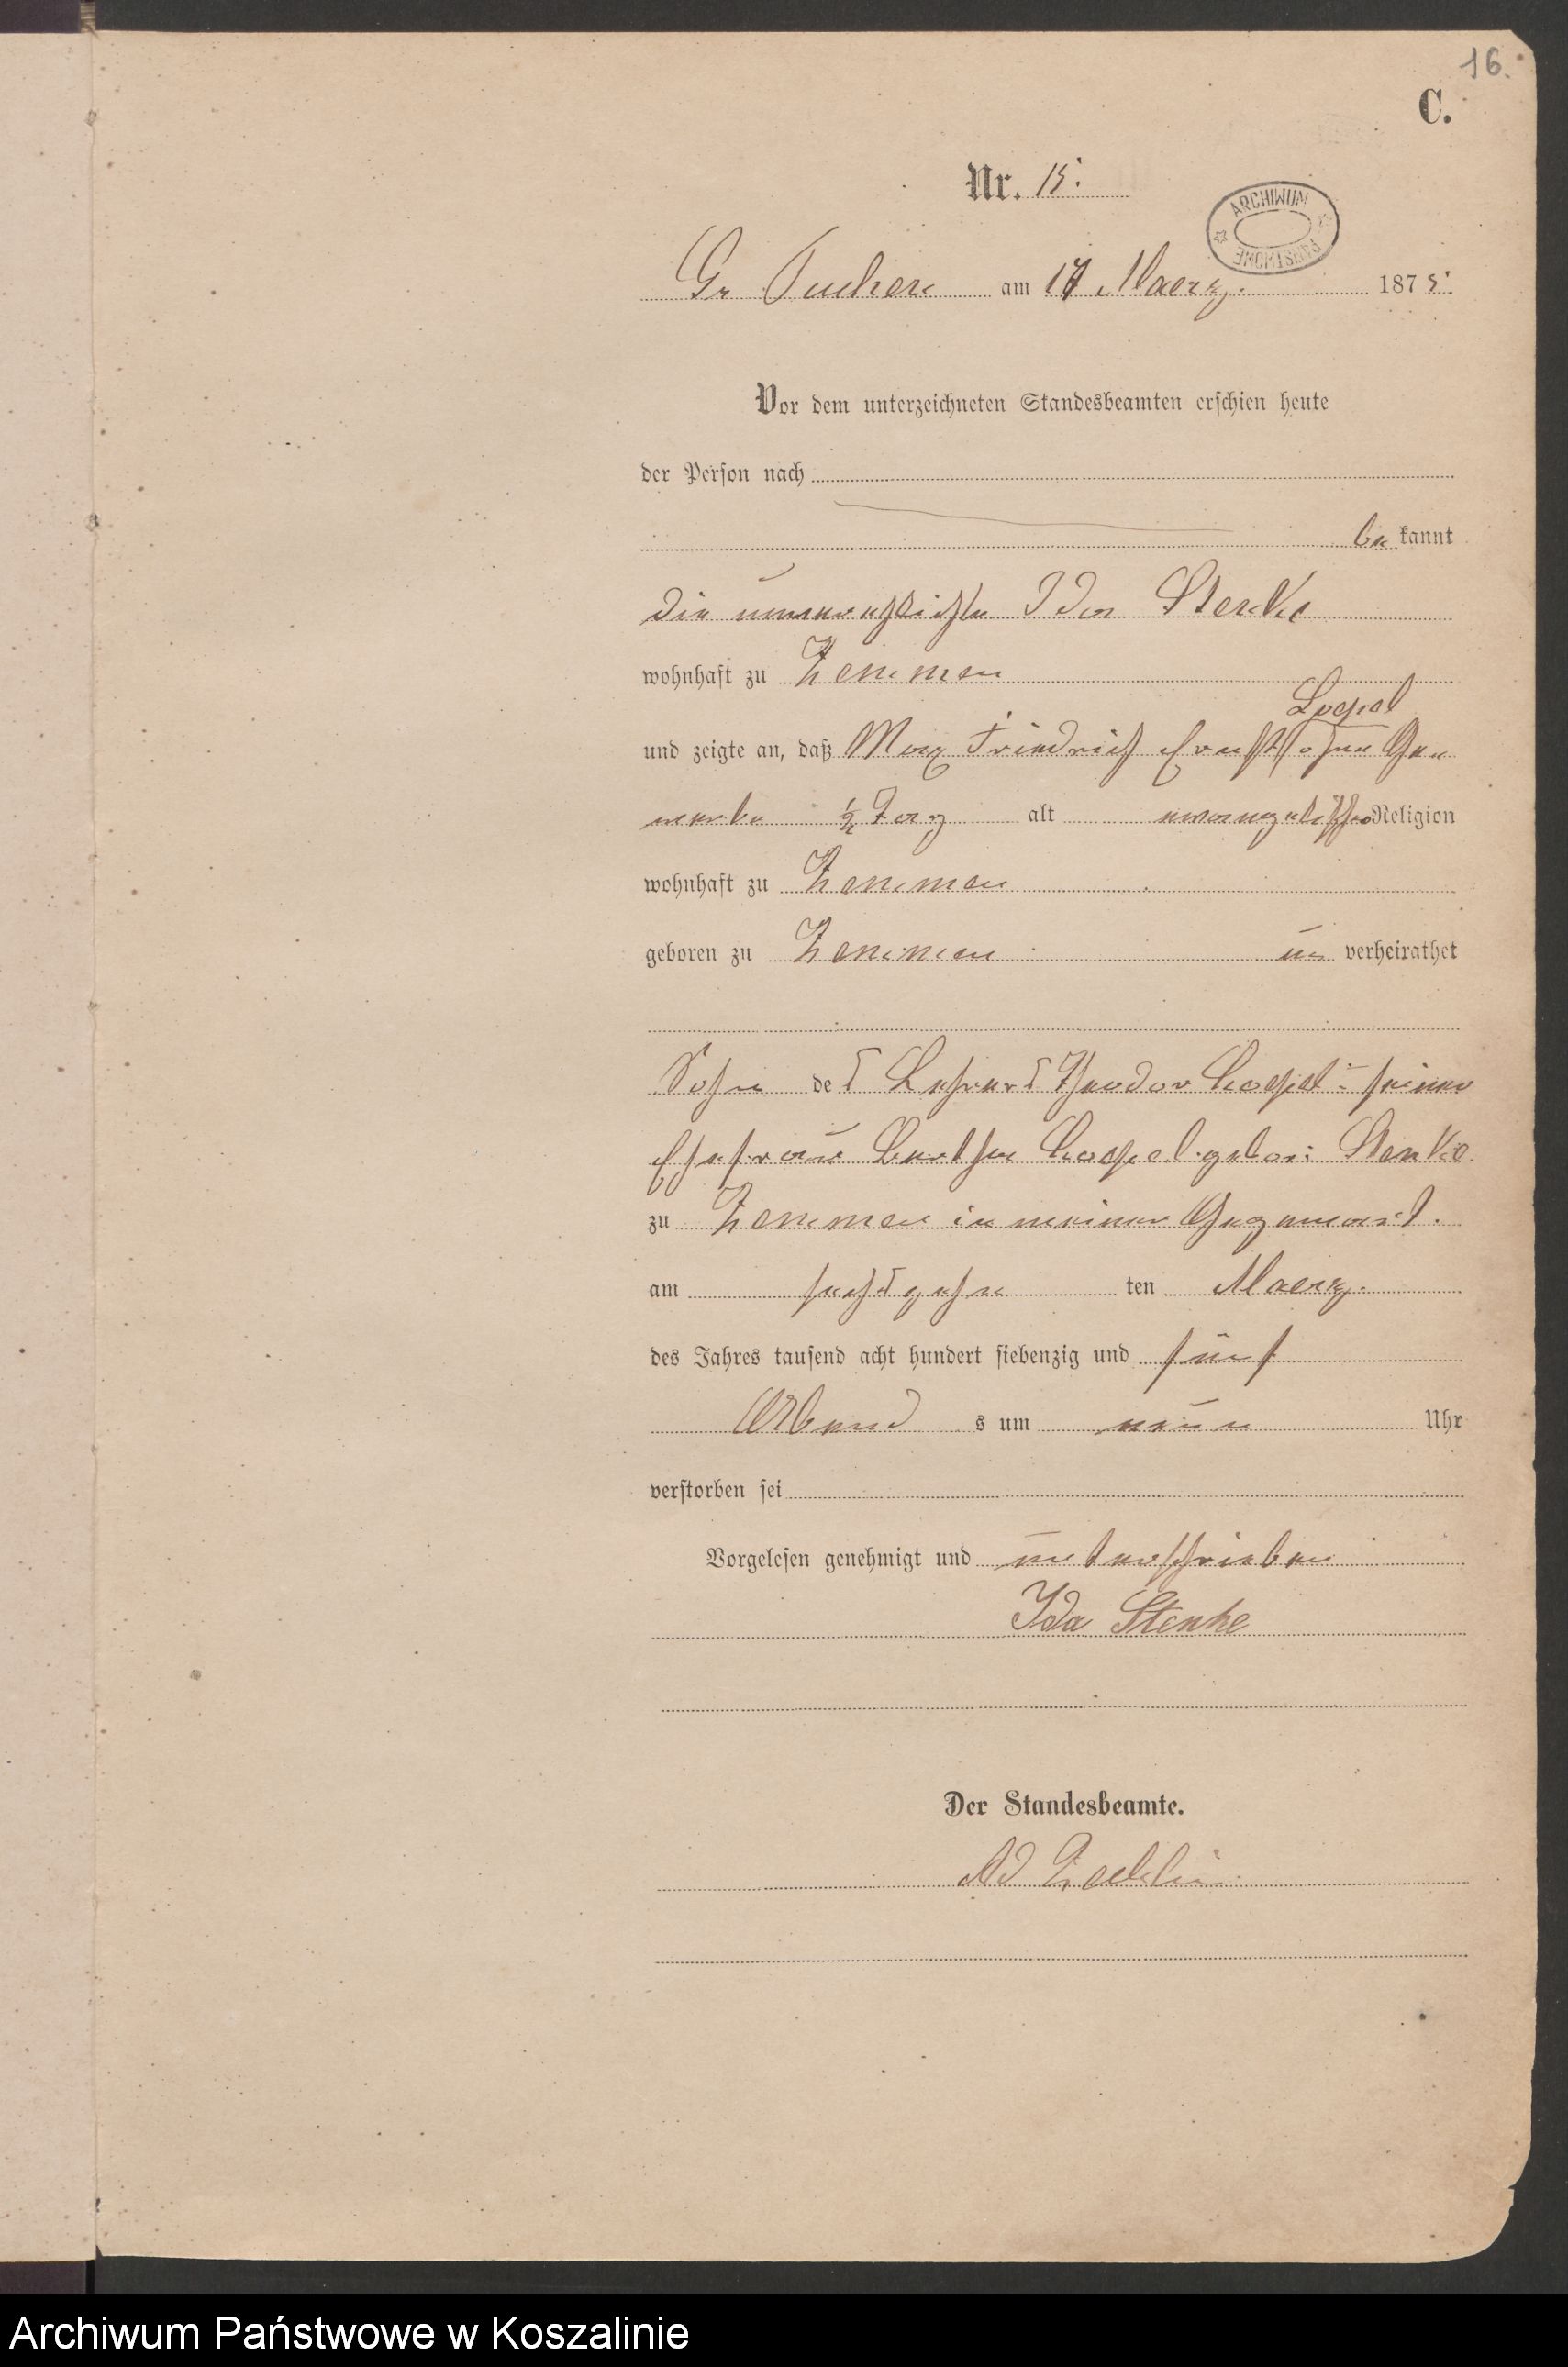 16.
C.
Nr. 15.
ARCHIWUM PAŃSTWOWE
Gr Tuchen am 17 Maerz. 1875.
Vor dem unterzeichneten Standesbeamten erschien heute
der Person nach
be kannt
die unverehlichte Ida Stenke
wohnhaft zu Zemmen
Loepel
und zeigte an, daß Max Friedrich Ernst ohne Ge-
werbe ½ Tag alt evangelischer Religion
wohnhaft zu Zemmen
geboren zu Zemmen un verheirathet
Sohn des Lehrers Theodor Loepel u. seiner
Ehefrau Bertha Loepel gebor: Stenke
zu Zemmen in meiner Gegenwart.
am sechszehn ten Maerz.
des Jahres tausend acht hundert siebenzig und fünf
Abend s um neun Uhr
verstorben sei
Vorgelesen genehmigt und unterschrieben
Ida Stenke
Der Standesbeamte.
Ad
Archiwum Państwowe w Koszalinie